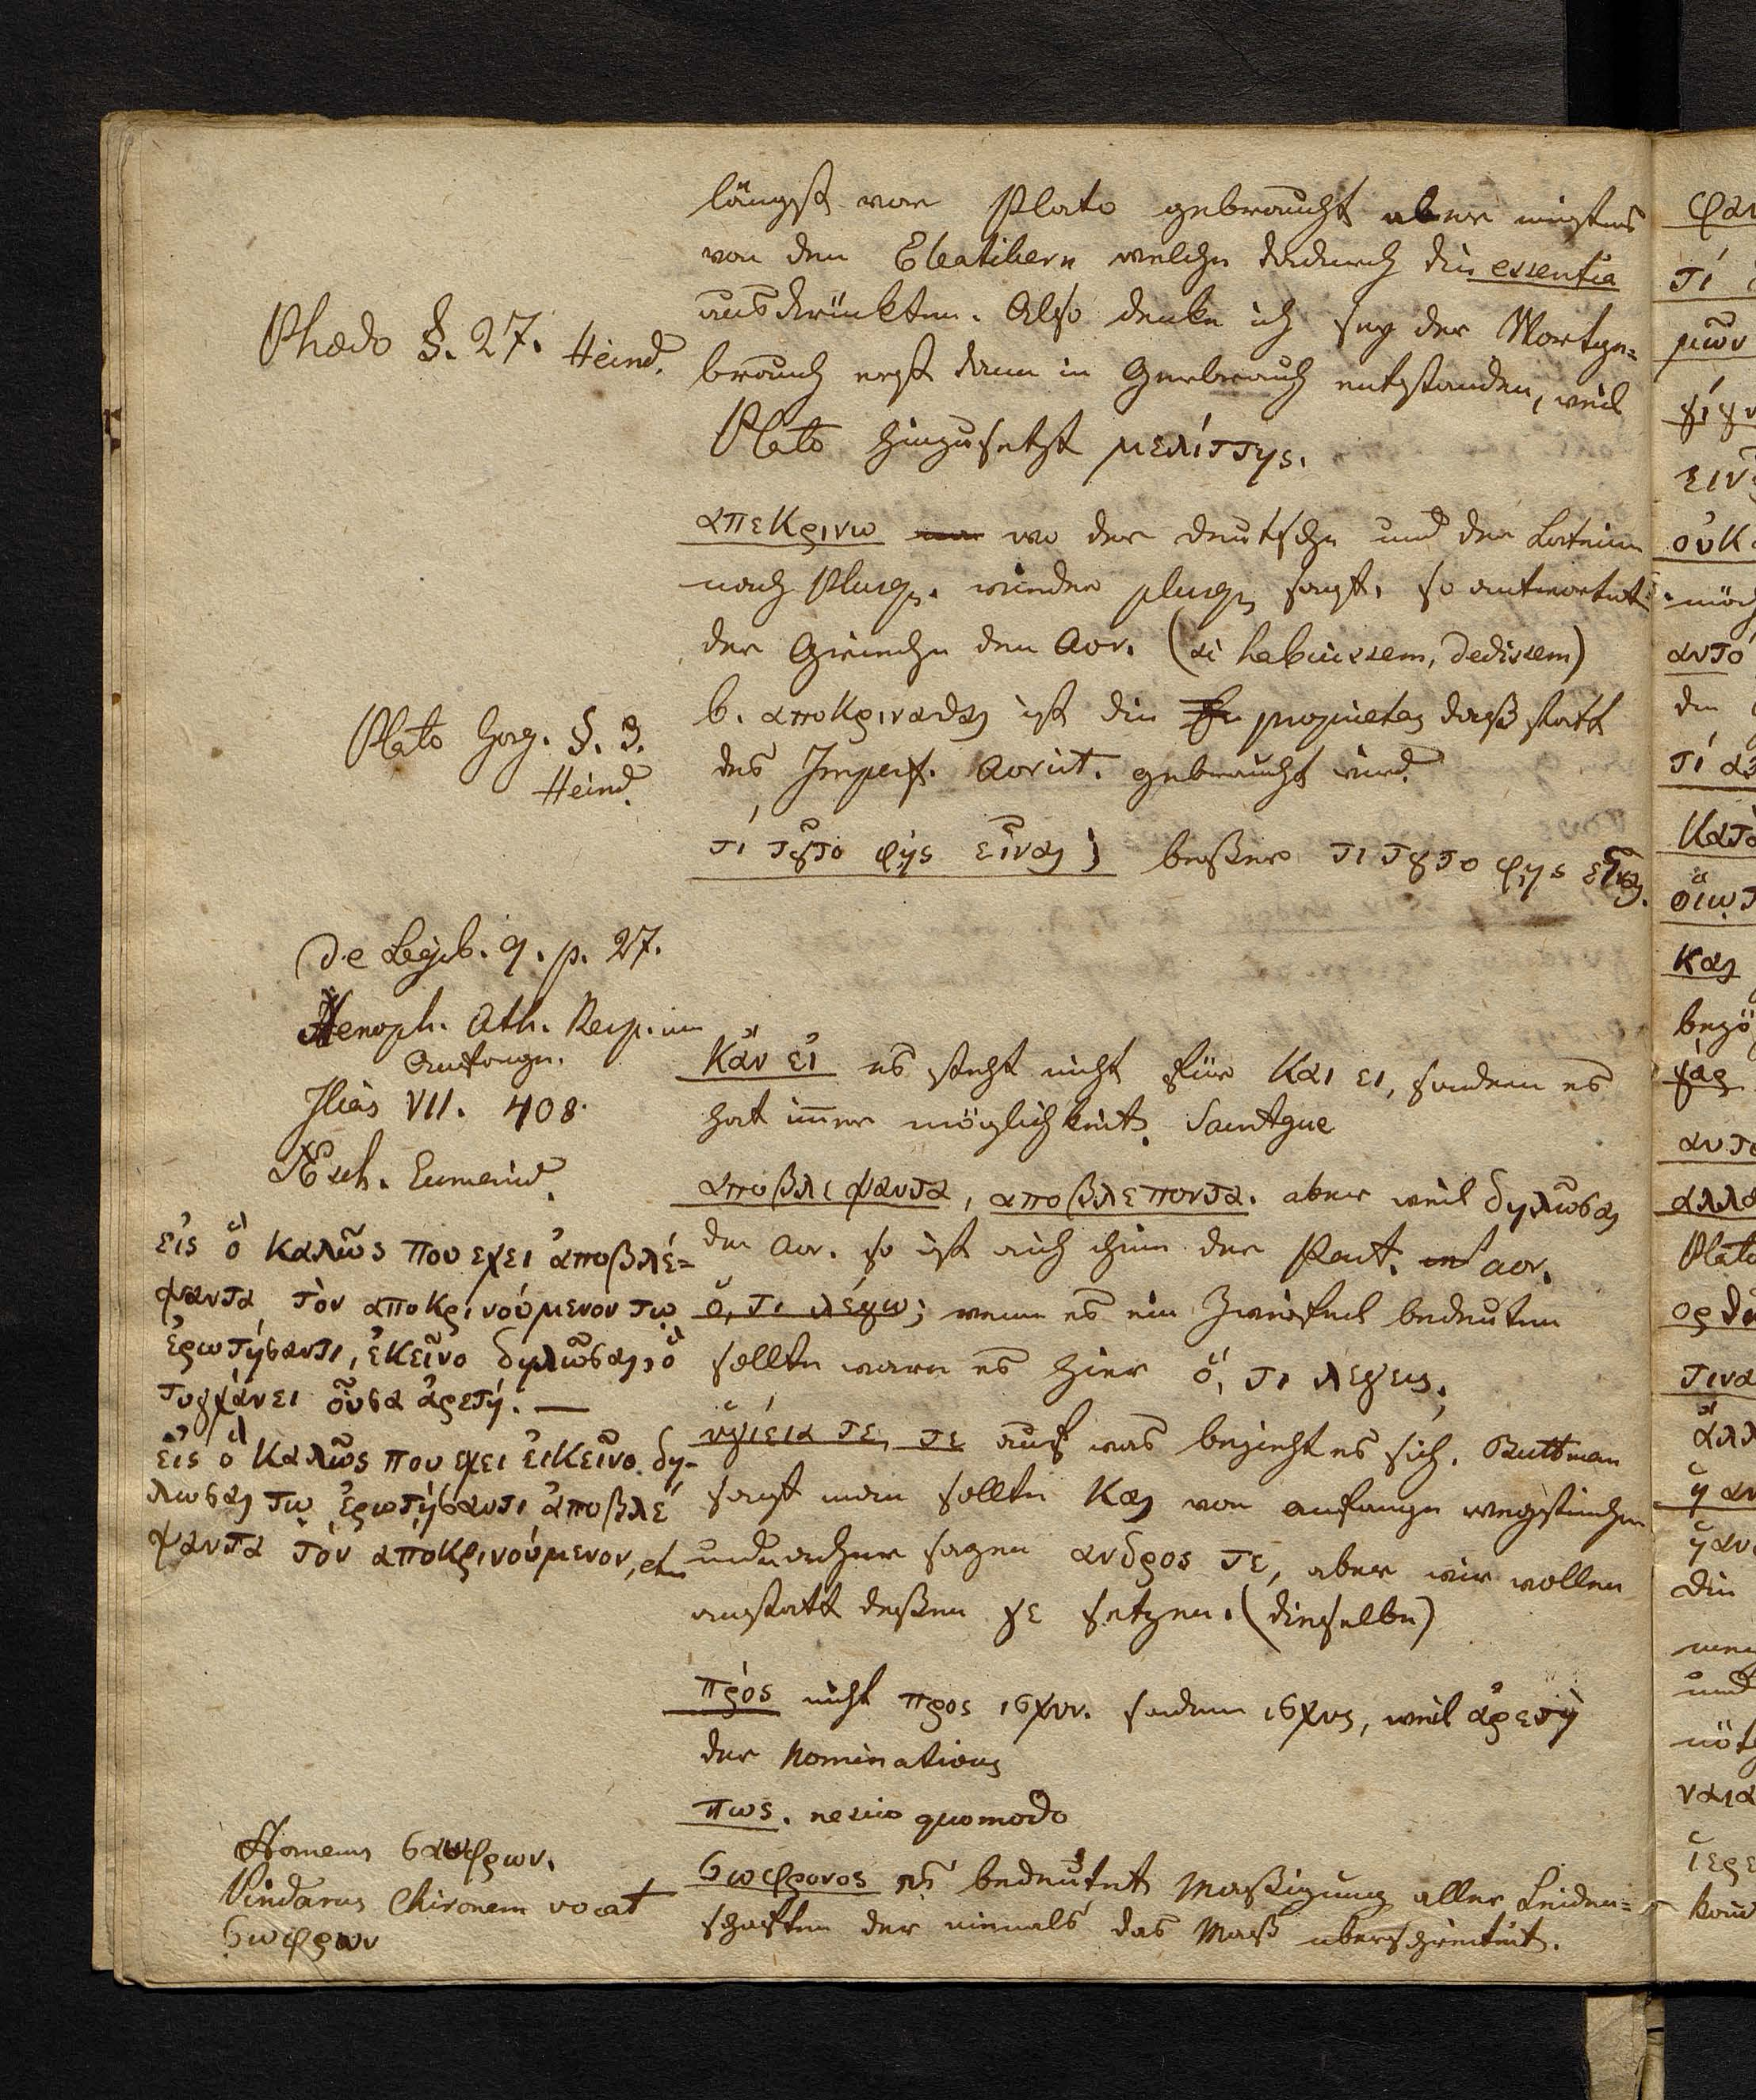 längst vor Plato gebraucht aber meistens
von den Eleatikern welche dadurch die essentia
ausdrückten. Also denke ich sey der Wortge=
brauch erst dann in Gerbrauch entstanden, weil
Plato hinzusetzt μελίττης.
Phædo §. 27. Heind.
απεκρινω wo der deutsche und der Lateiner
nach Plusq. wieder plusq. sagt, so antwortet
der Grieche den Aor. (si habuissem, dedissem)
b. αποκρινασθαι ist die proprietas daß statt
des Imperf. Aorist. gebraucht wird.
Plato Gorg. §. 3.
Heind.
τί τȣ̃το φῂς εἶναι; beßer τι τȣτο φῃς εἶναι.
De Legib. 9. p. 27.
Xenoph. Ath. Resp. im
Anfange.
Ilias VII. 408.
Æsch. Eumenid.
Κἂν εἰ es steht nicht für και ει, sondern es
hat im̅er möglichkeit.
αποβλεψαντα, αποβλεποντα. aber weil δηλῶσαι
der Aor. so ist auch ihm der Part. aor.
ὅ, τι λέγω; wenn es ein Zweifel bedeuten
sollte ware es hier ὅ, τι λεγεις.
ὑγίεια τε, τε auf was bezieht es sich. Buttman
sagt man sollte και von anfange wegstreichen
und nachher sagen ανδρος τε, aber wir wollen
anstatt deßen γε setzen. (dieselbe)
εἰς ὃ καλῶς που εχει ἀποβλέ=
ψαντα τὸν αποκρινούμενον τῳ
ἐρωτήσαντι, ἐκεῖνο δηλῶσαι, ὃ
τυγχάνει οὖσα ἀρετή. —
εἰς ὃ καλῶς που εχει ἐκεῖνο δη-
λωσαι τῳ ἐρωτήσαντι ἀποβλέ
ψαντα τὸν ἀποκρινούμενον, etc
πρός nicht προς ισχυν. sondern ισχυς, weil ἀρετὴ
der Nominativus
πως. nescio quomodo
σωφρονος es bedeutet Maßigung aller Leiden=
schaften der niemals das Maß uberschreitet.
Homerus σαοφρων.
Pindarus Chironem vocat
σωφρων